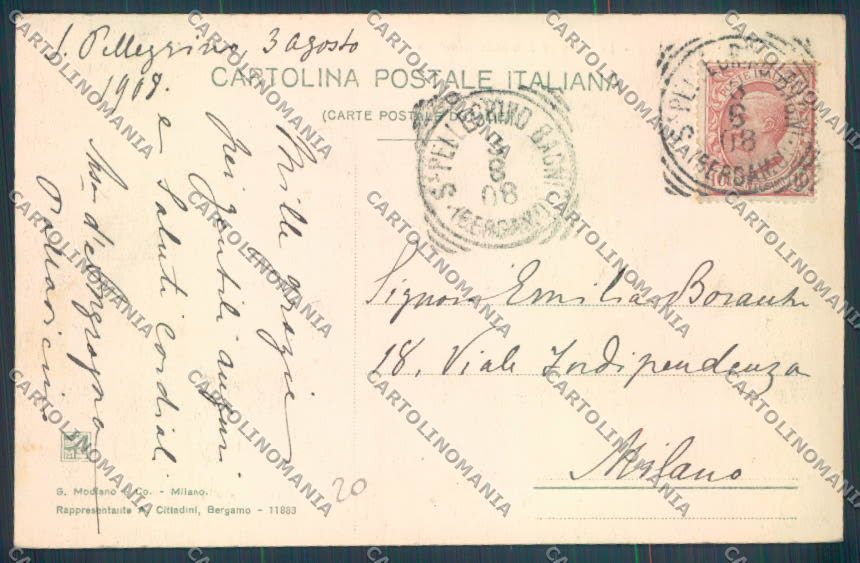 S. Pellegrino, 3 agosto
1908.
CARTOLINA POSTALE ITALIANA
(CARTE POSTALE D'ITALIE)
Mille grazie
pei gentili auguri
e saluti cordiali
Pallavicini
Signora Emilia
18, Viale Indipendenza
Milano
S. PELLEGRINO BAGNI
3
8
08
(BERGAMO)
S. PELLEGRINO BAGNI
3
8
08
(BERGAMO)
G. Modiano & Co. - Milano.
Rappresentante A. Cittadini, Bergamo - 11883
20
CARTOLINOMANIA